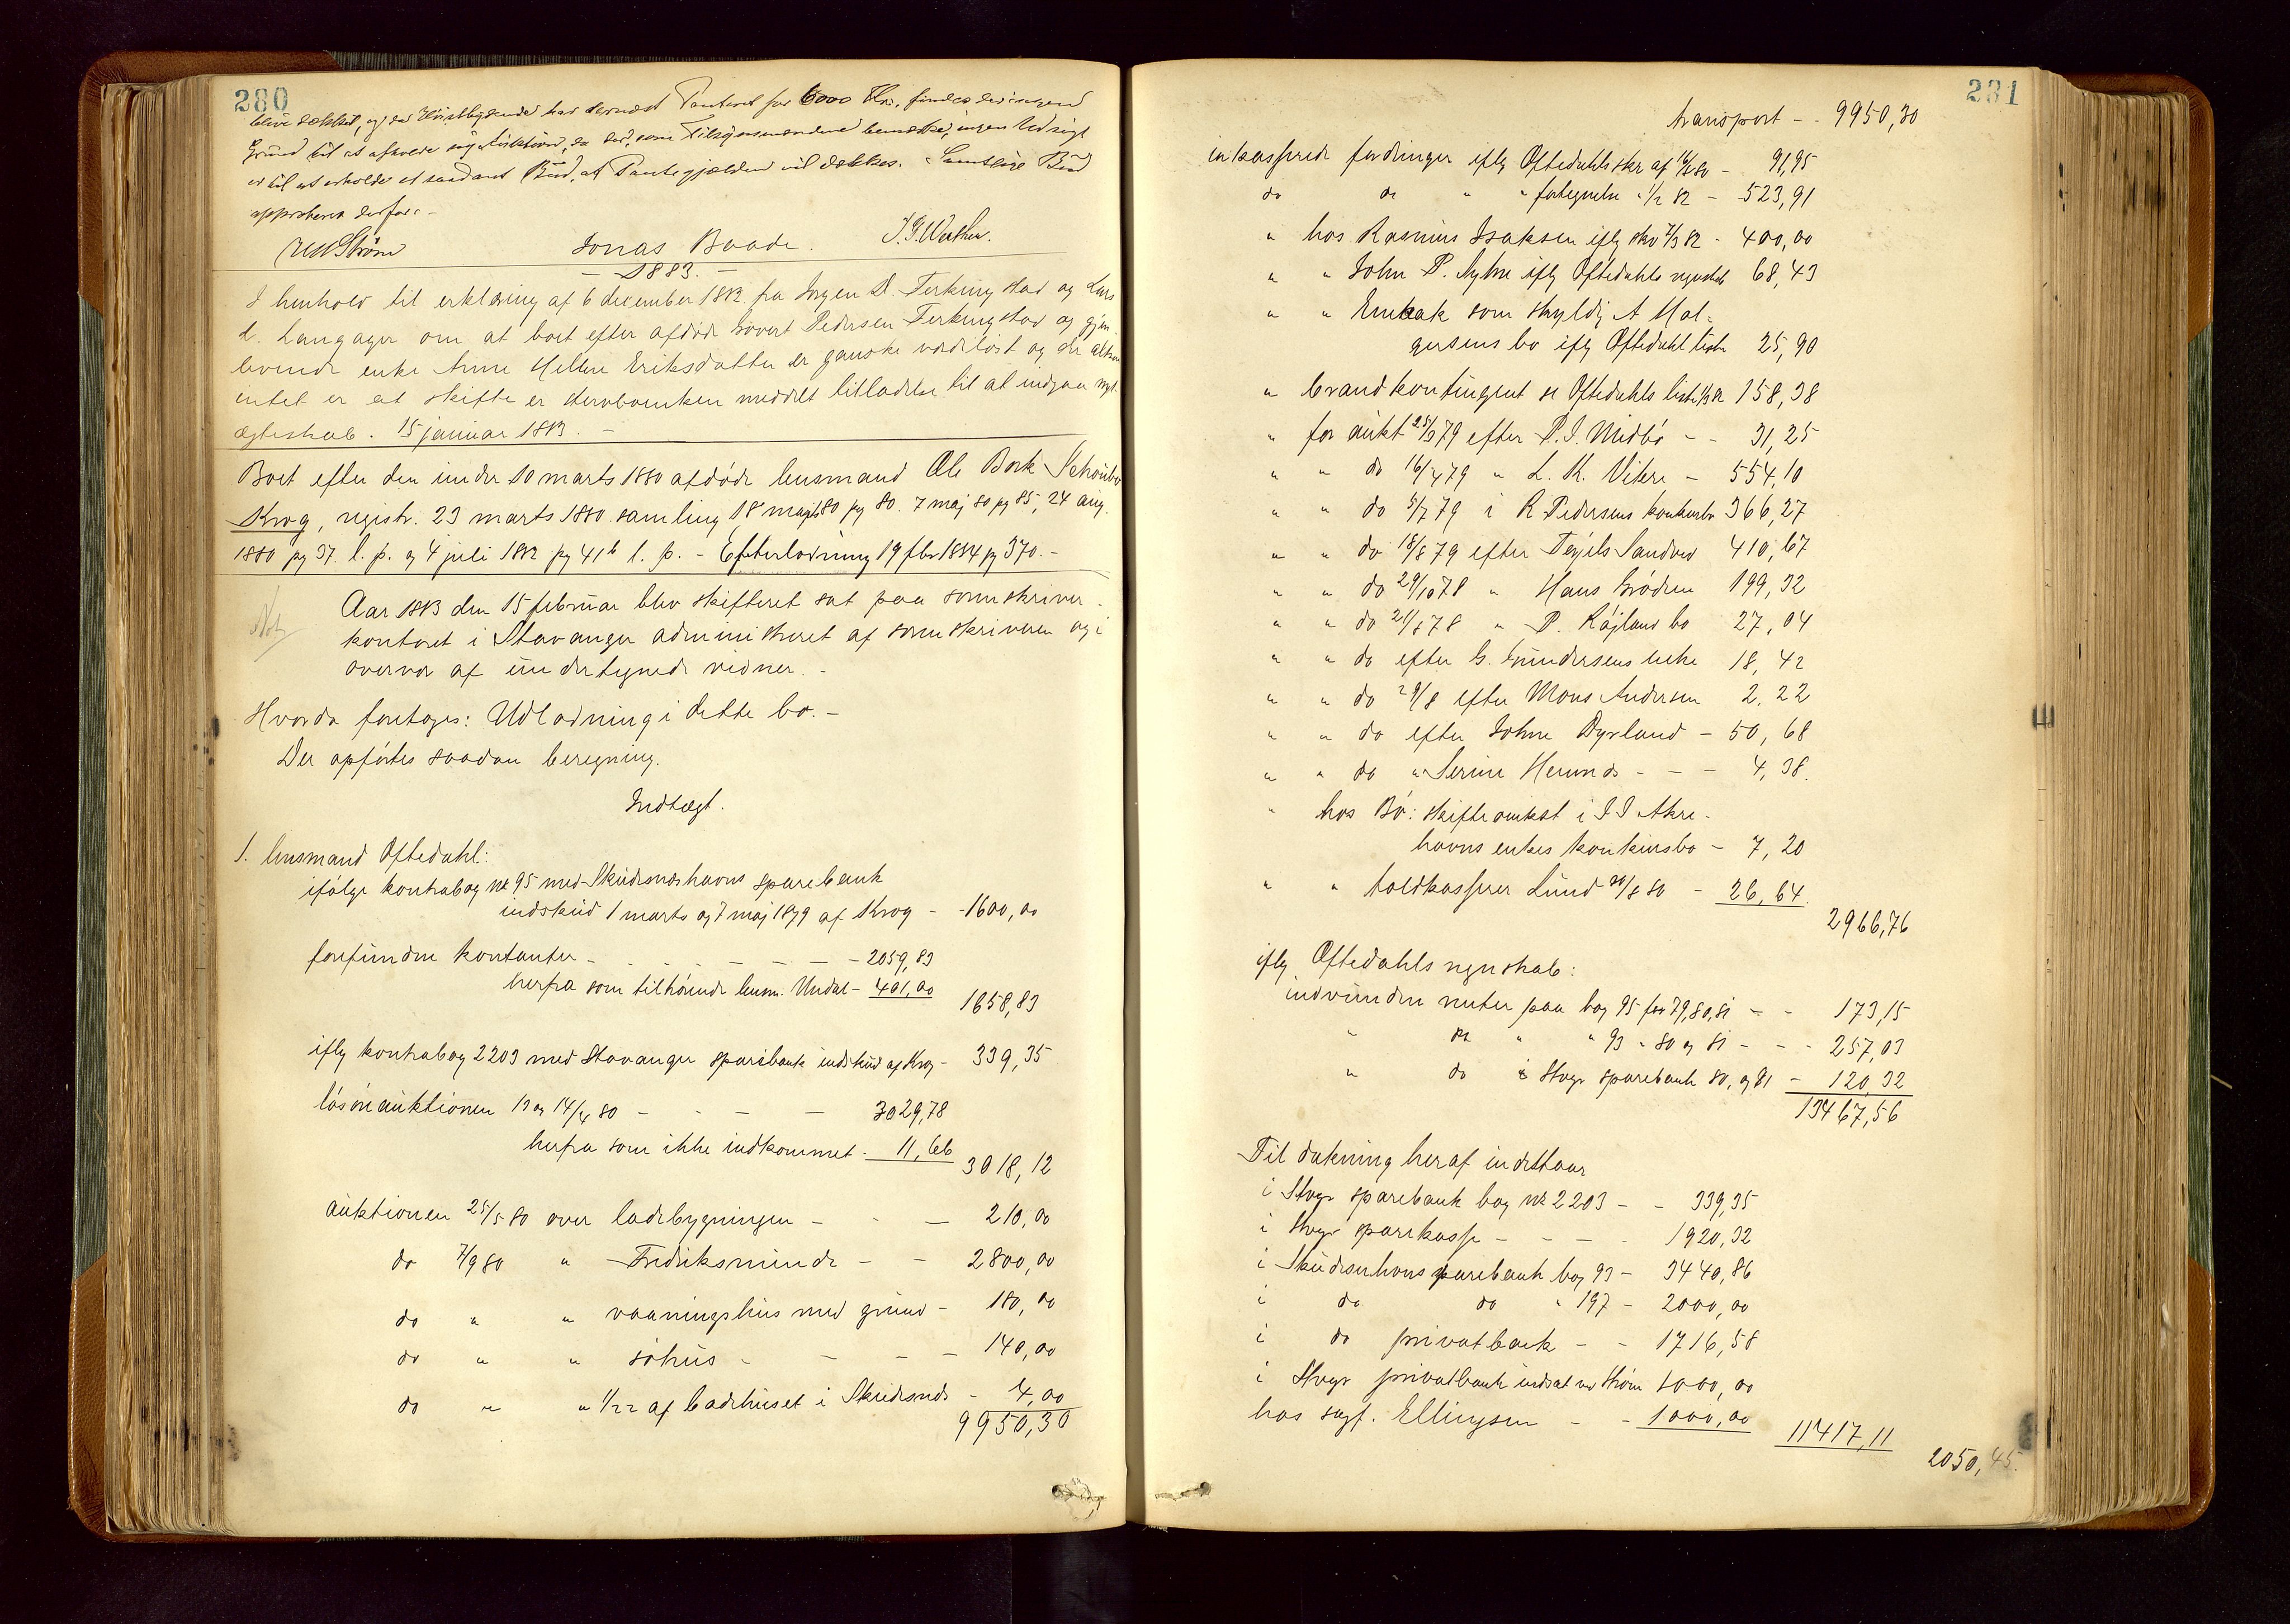 280
blive dækket, og da Høistbydende har dernæst Panteret for 6000 Kr., findes der ingen
Grund til at afholde ny Auktion, da der, som Tilsynsmændene bemærke, ingen Udsigt
er til at erholde et saadant Bud, at Pantegjælden vil dækkes. Samtlige Bud
approberes derfor. -
Jonas Baade. J. G. Wather.
- 1883. -
I henhold til erklæring af 6 december 1882 fra Jørgen D. Ferkingstad og Lars
L. Langager om at boet efter afdøde Sivert Pedersen Ferkingstad og gjen-
levende enke Anne Hellene Eriksdatter er ganske værdiløst og der altsaa
intet er at skifte er stervboenken meddelt tilladelse til at indgaa nyt
ægteskab. 15 januar 1883. -
Boet efter den under 10 marts 1880 afdøde lensmand Ole Bork Schouboe
Krog, registr. 23 marts 1880. samling 18 marts 80 pg 80. 7 maj 80 pg 85, 24 aug.
1880 pg 37. l. p. og 4 juli 1882 pg 41b l. p. - Efterlodning 19 fbr 1884 pg 370. -
Aar 1883 den 15 februar blev skifteret sat paa sorenskriver-
kontoret i Stavanger administreret af sorenskriveren og i
overvær af undertegnede vidner. -
Hvorda foretoges: Udlodning i dette bo. -
Der opførtes saadan beregning.
Indtægt.
1. lensmand Oftedahl:
ifølge kontrabog № 95 med Skudesneshavns sparebank
indskud 1 marts og 7 maj 1879 af Krog - - 1600,00
forefundne kontanter - - - - - - 2059,83
herfra som tilhørende lensm. Undal - 401,00
1658,83
iflg kontrabog 2203 med Stavanger sparebank indskud af Krog - 339,35
løsøreauktionen 13 og 14/4 80 - - - - 3029,78
herfra som ikke indkommet - 11,66
3018,12
auktionen 25/5 80 over ladebygningen - - - 210,00
do 7/9 80 " Fredriksminde - - 2800,00
do " " vaaningshus med grund - 180,00
do " " søhus - - - - 140,00
do " " 1/22 af badehuset i Skudesnes - 4,00
9950,30
281
transport - - 9950,30
inkasserede fordringer iflg Oftedahls skr af 14/2 80 - 91,95
do do " " fortegnelse " 1/2 82 - 523,91
" hos Rasmus Isaksen iflg skr 7/3 82 - 400,00
" " John P. Nyhre iflg Oftedahls regnskab 68,43
" " Emkak som skyldig A Hol-
gersens bo iflg Oftedahl liste 25,90
" brandkontingent se Oftedahls liste 1/3 82 158,38
" for aukt 25/3 79 efter P. I. Midbø - - 31,25
" " do 16/4 79 " L. K. Vikre - 554,10
" " do 5/7 79 i R. Pedersens konkursbo 366,27
" " do 18/8 79 efter Terjels Sandved 410,67
" " do 29/10 78 " Hans Brødren 199,32
" " do 21/8 78 " P. Røjlands bo 27,04
" " do efter G. Gundersens enke 18,42
" " do 29/8 efter Mons Andersen 2,22
" " do efter Johne Dyrland - 50,68
" " do " Serine Hemnes - - - 4,38.
" hos Bø: skifteomkost i I I Akre-
havns enkes konkursbo - 7,20
" " toldkasserer Lund 20/8 80 - 26,64.
2966,76
iflg Oftedahls regnskab:
indvundne renter paa bog 95 for 79,80,81 - - 173,15
" do " " 93 " 80 og 81 - - - 257,03
" do i Stvgr sparebank 80, og 81 - 120,32
13467,56
Til dækning heraf indestaar
i Stvgr sparebank bog № 2203 - - 339,35
i Stvgr sparekasse - - - - 1920,32
i Skudesnhavns sparebank bog 93 - 3440,86
i do do " 197 - 2000,00
i do privatbank - - 1716,58
i Stvgr privatbank indsat ved Strøm 1000,00
hos sagf. Ellingsen - - 1000,00
11417,11
2050,45.